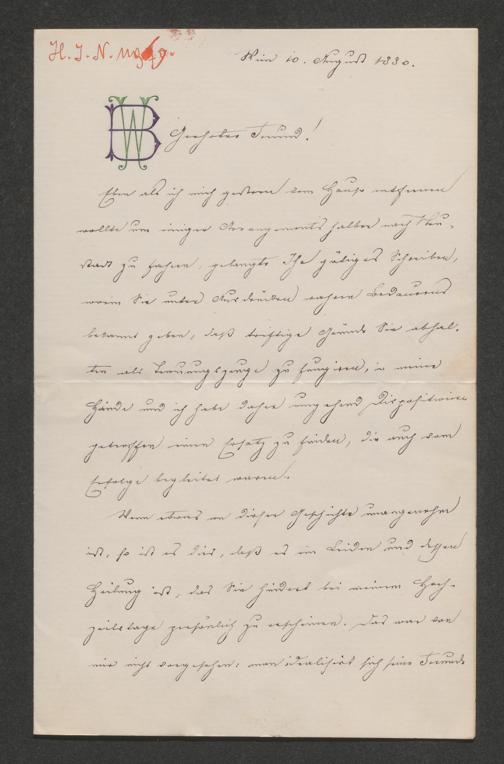 H. I. N.
Wien 10. August 1880.
BW
Geehrter Freund!
Eben als ich mich gestern vom Hause entfernen
wollte um einiger Arrangements halber nach Neu-
stadt zu fahren, gelangte Ihr gütiges Schreiben,
worin Sie unter Ausdrücken wahren Bedauerns
bekannt geben, daß triftige Gründe Sie abhal-
ten als Trauungszeuge zu fungiren, in meine
Hände und ich habe daher umgehend Dispositionen
getroffen einen Ersatz zu finden, die auch vom
Erfolge begleitet waren.
Wenn etwas an dieser Geschichte unangenehm
ist, so ist es dies, daß es ein Leiden und dessen
Heilung ist, das Sie hindert bei meinem Hoch-
zeitstage persönlich zu erscheinen. Das war von
mir nicht vorgesehen: man idealisirt sich seine Freunde